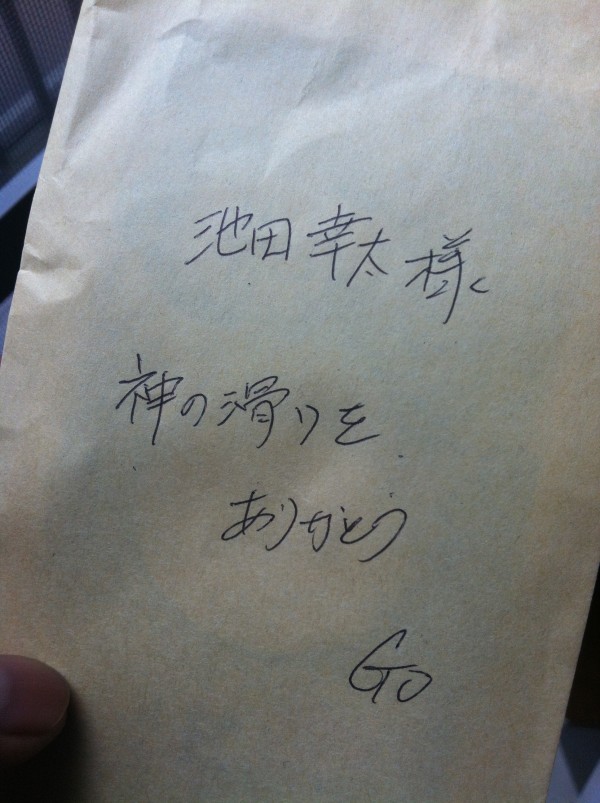 池田幸太様
神の滑りを
ありがとう
Go